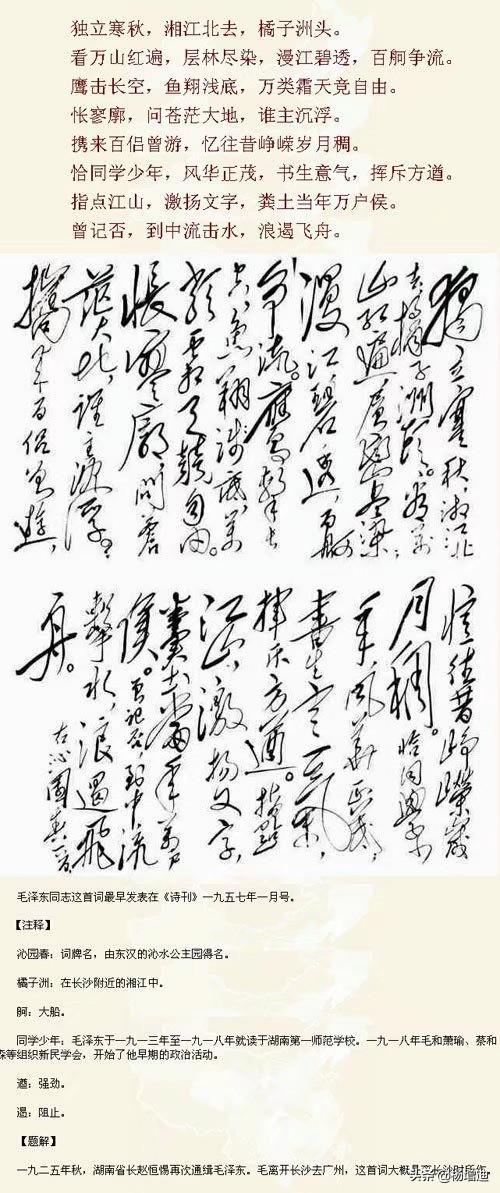 独立寒秋，湘江北去，橘子洲头。
看万山红遍，层林尽染，漫江碧透，百舸争流。
鹰击长空，鱼翔浅底，万类霜天竞自由。
怅寥廓，问苍茫大地，谁主沉浮。
携来百侣曾游，忆往昔峥嵘岁月稠。
恰同学少年，风华正茂，书生意气，挥斥方遒。
指点江山，激扬文字，粪土当年万户侯。
曾记否，到中流击水，浪遏飞舟。
獨立寒秋，湘江北
去，橘子洲頭。看萬
山紅遍，層林盡染；
漫江碧透，百舸
爭流。鷹擊長
空，魚翔淺底，萬
類霜天競自由。
悵寥廓，問蒼
茫大地，誰主沉浮。
攜來百侶曾遊，
憶往昔崢嶸歲
月稠。恰同學少
年，風華正茂，
書生意氣，
揮斥方遒。指點
江山，激揚文字，
糞土當年萬戶
侯。曾記否，到中流
擊水，浪遏飛
舟。
右沁園春一首
毛泽东同志这首词最早发表在《诗刊》一九五七年一月号。
【注释】
沁园春：词牌名，由东汉的沁水公主园得名。
橘子洲：在长沙附近的湘江中。
舸：大船。
同学少年：毛泽东于一九一三年至一九一八年就读于湖南第一师范学校。一九一八年毛和萧瑜、蔡和
森等组织新民学会，开始了他早期的政治活动。
遒：强劲。
遏：阻止。
【题解】
一九二五年秋，湖南省长赵恒惕再次通缉毛泽东。毛离开长沙去广州，这首词大概是离长沙时所作。
头条 @杨增迪